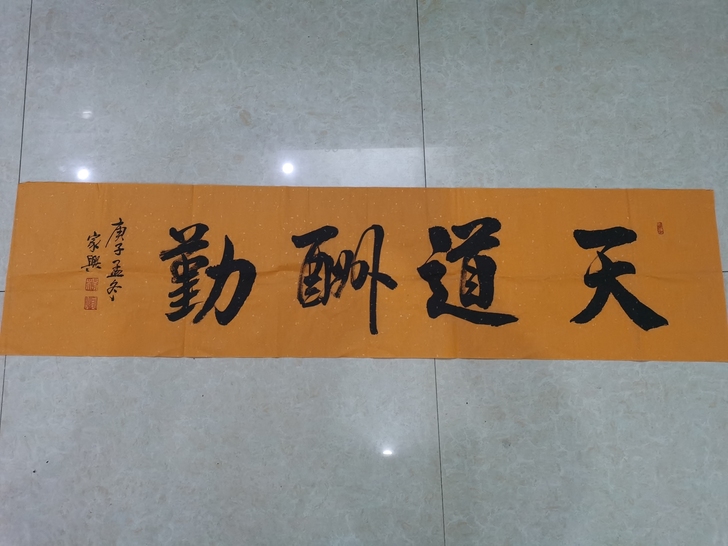 天道酬勤
庚子孟冬
家興